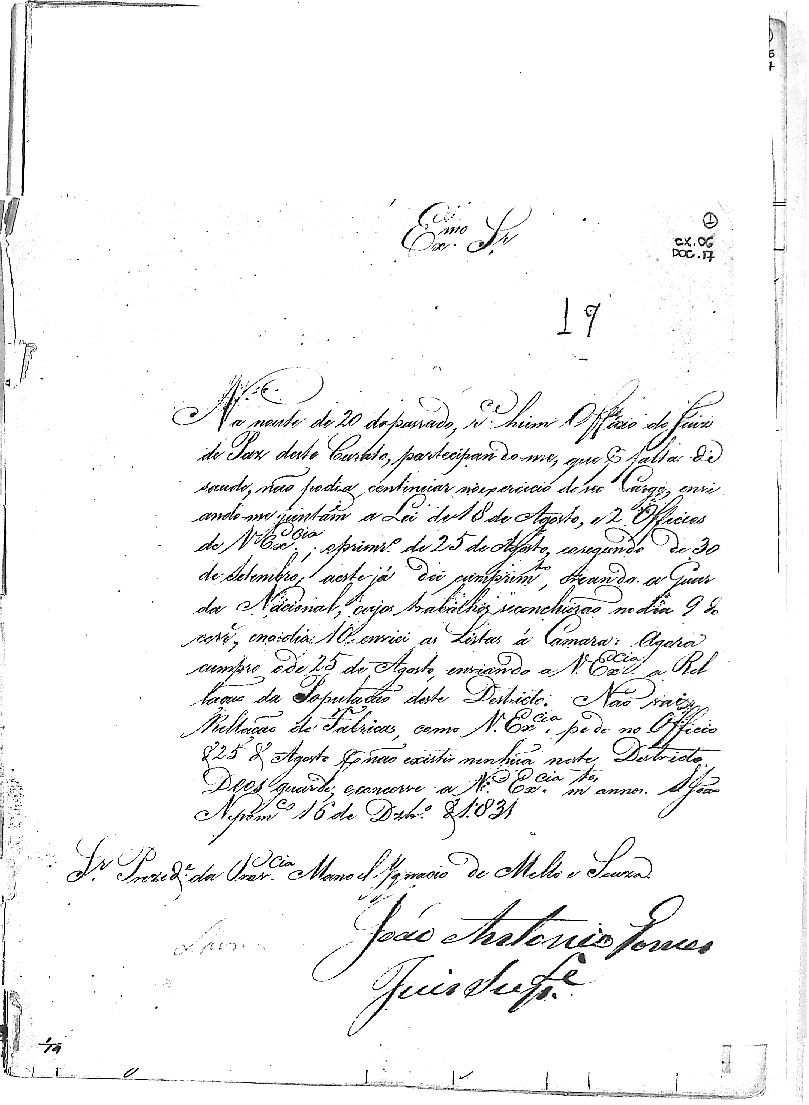 Ex.mo Sr
①
CX.06
DOC.17
19
Na noute de 20 do passado, r.ce hum Officio do Juiz
de Paz deste Curato, partecipando me, que falta de
saude, não podia continuar no exercicio de seo Cargo, envi
ando-me juntam a Lei de 18 de Agosto, e 2 Officios
de V. Ex.cia, o prim.ro de 25 de Agosto, e o segundo de 30
de Setembro; a este já dei cumprim.to, a Guar
da Nacional, cujos trabalhos se concluirão no dia 9 do
corr.e, e no dia 10 enviei as Listas á Camara: Agora
cumpro o de 25 de Agosto, enviando a V. Ex.cia a Rel
lação da População deste Destricto. Não vai
Rellação de Fabricas, como V. Ex.cia pede no Officio
25 Agosto não existir nenhúa neste Destricto
Deos guarde, e concerve a V. Ex.cia m.tos annos. S. João
Nepom.co 16 de Dzbr.o 1831
Sr. Prezid.e da Prov.cia Manoel Ignacio de Mello e Souza
João Antonio Gomes
Juis Sup.e
1/19